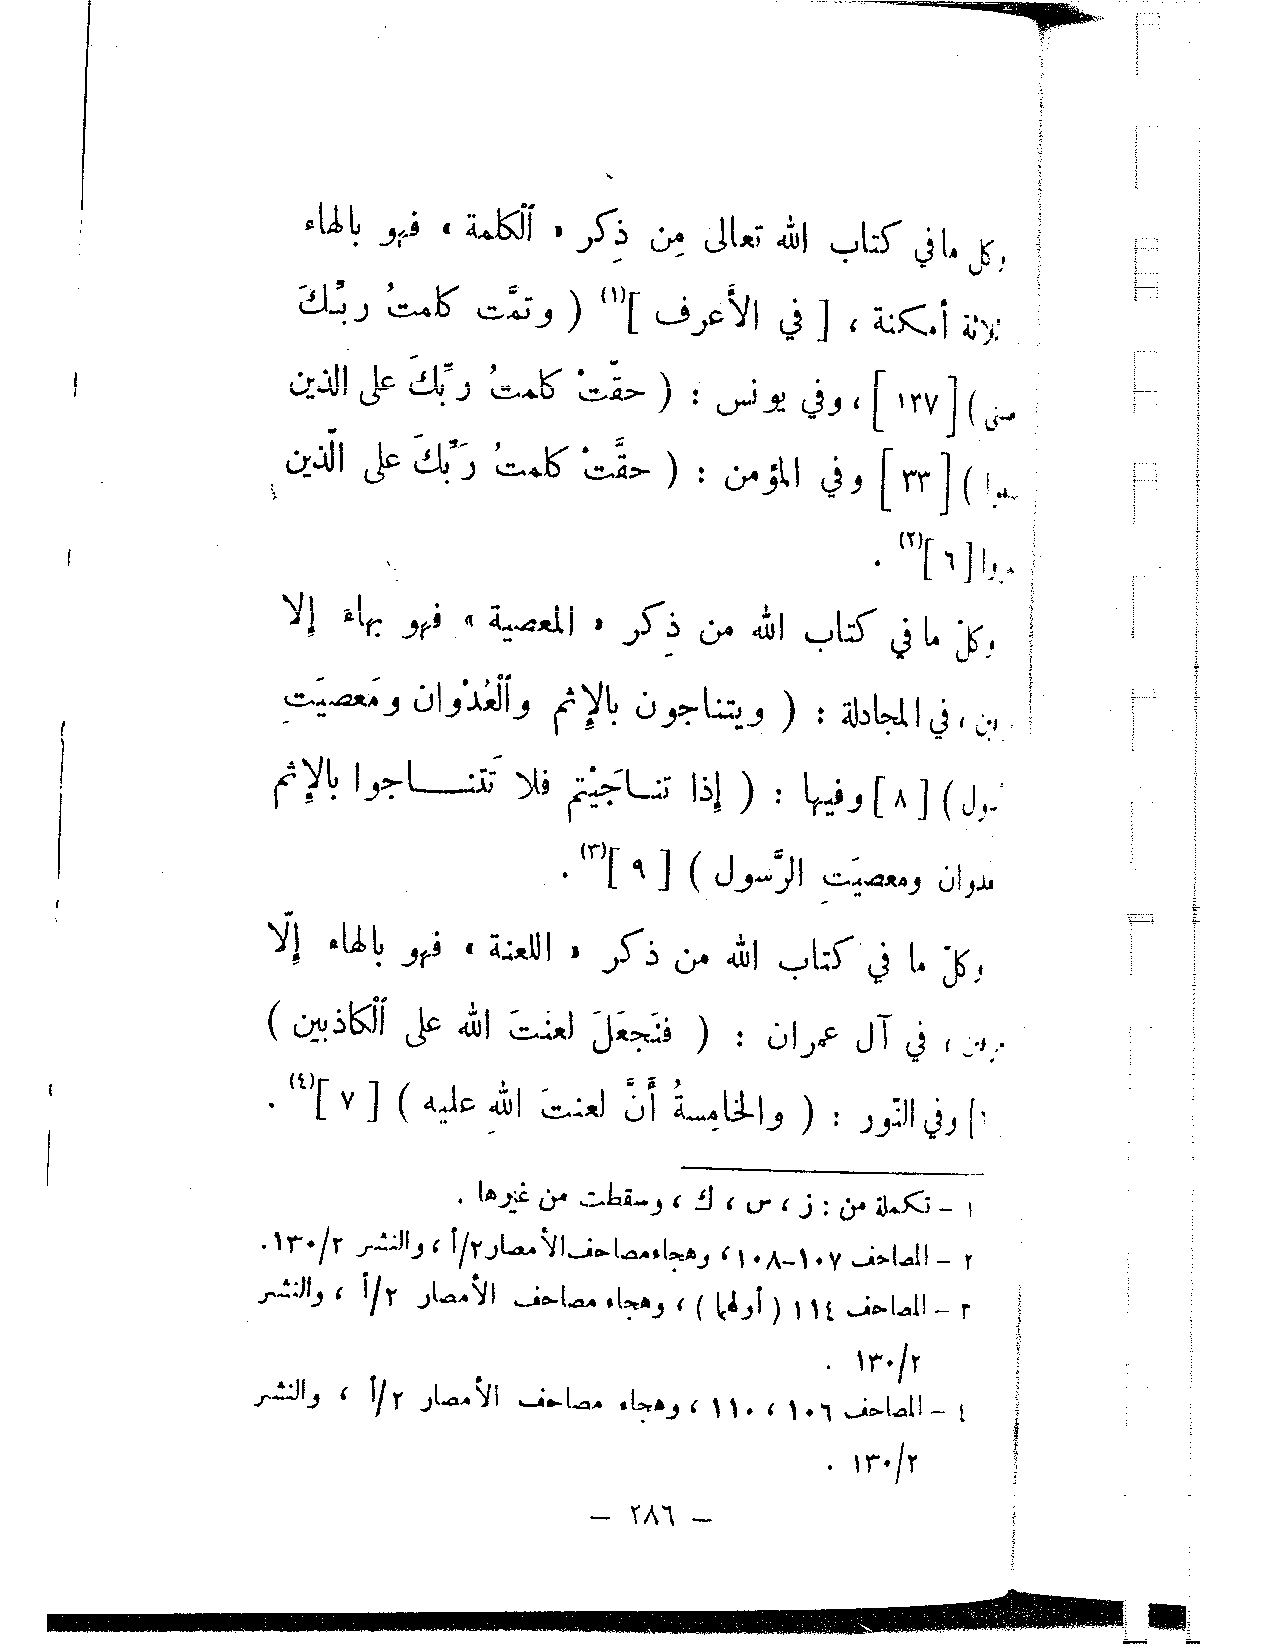 وكل ما في كتاب الله تعالى مِن ذِكر « ٱلكلمة » فهو بالهاء
ثلاثة أمكنة ، [ في الأَعرف ](١) ( وتمَّت كلمتُ ربِّكَ
) [ ١٣٧ ] ، وفي يونس : ( حقّتْ كلمتُ ربِّكَ على الذين
) [ ٣٣ ] وفي المؤمن : ( حقَّتْ كلمتُ رَبِّكَ على الّذين
[ ٦ ](٢) .
وكلّ ما في كتاب الله من ذِكر « المعصية » فهو بهاء إلا
، في المجادلة : ( ويتناجون بالإِثم وٱلْعُدْوان ومَعصيَتِ
) [ ٨ ] وفيها : ( إذا تناجَيْتم فلا تَتنـاجوا بالإِثم
ومعصيَتِ الرَّسول ) [ ٩ ](٣) .
وكلّ ما في كتاب الله من ذكر « اللعنة » فهو بالهاء إلّا
، في آل عمران : ( فنَجعَلَ لعنَتَ الله على ٱلْكاذبين )
] وفي النّور : ( والخامِسةُ أَنَّ لعنتَ اللهِ عليه ) [ ٧ ](٤) .
١ – تكملة من : ز ، س ، ك ، وسقطت من غيرها .
٢ – المصاحف ١٠٧–١٠٨ ، وهجاء مصاحف الأمصار ٢/أ ، والنشر ١٣٠/٢ .
٣ – المصاحف ١١٤ ( أولهما ) ، وهجاء مصاحف الأمصار ٢/أ ، والنشر
١٣٠/٢ .
٤ – المصاحف ١٠٦ ، ١١٠ ، وهجاء مصاحف الأمصار ٢/أ ، والنشر
١٣٠/٢ .
– ٢٨٦ –